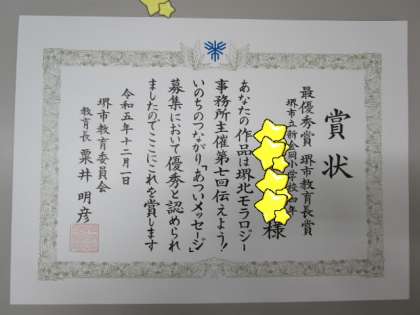 賞状
最優秀賞 堺市教育長賞
堺市立新金岡小学校 四年
様
あなたの作品は堺北モラロジー
事務所主催第七回伝えよう！
いのちのつながり"あついメッセージ"
募集において優秀と認められ
ましたのでここにこれを賞します
令和五年十二月一日
堺市教育委員会
教育長 粟井明彦